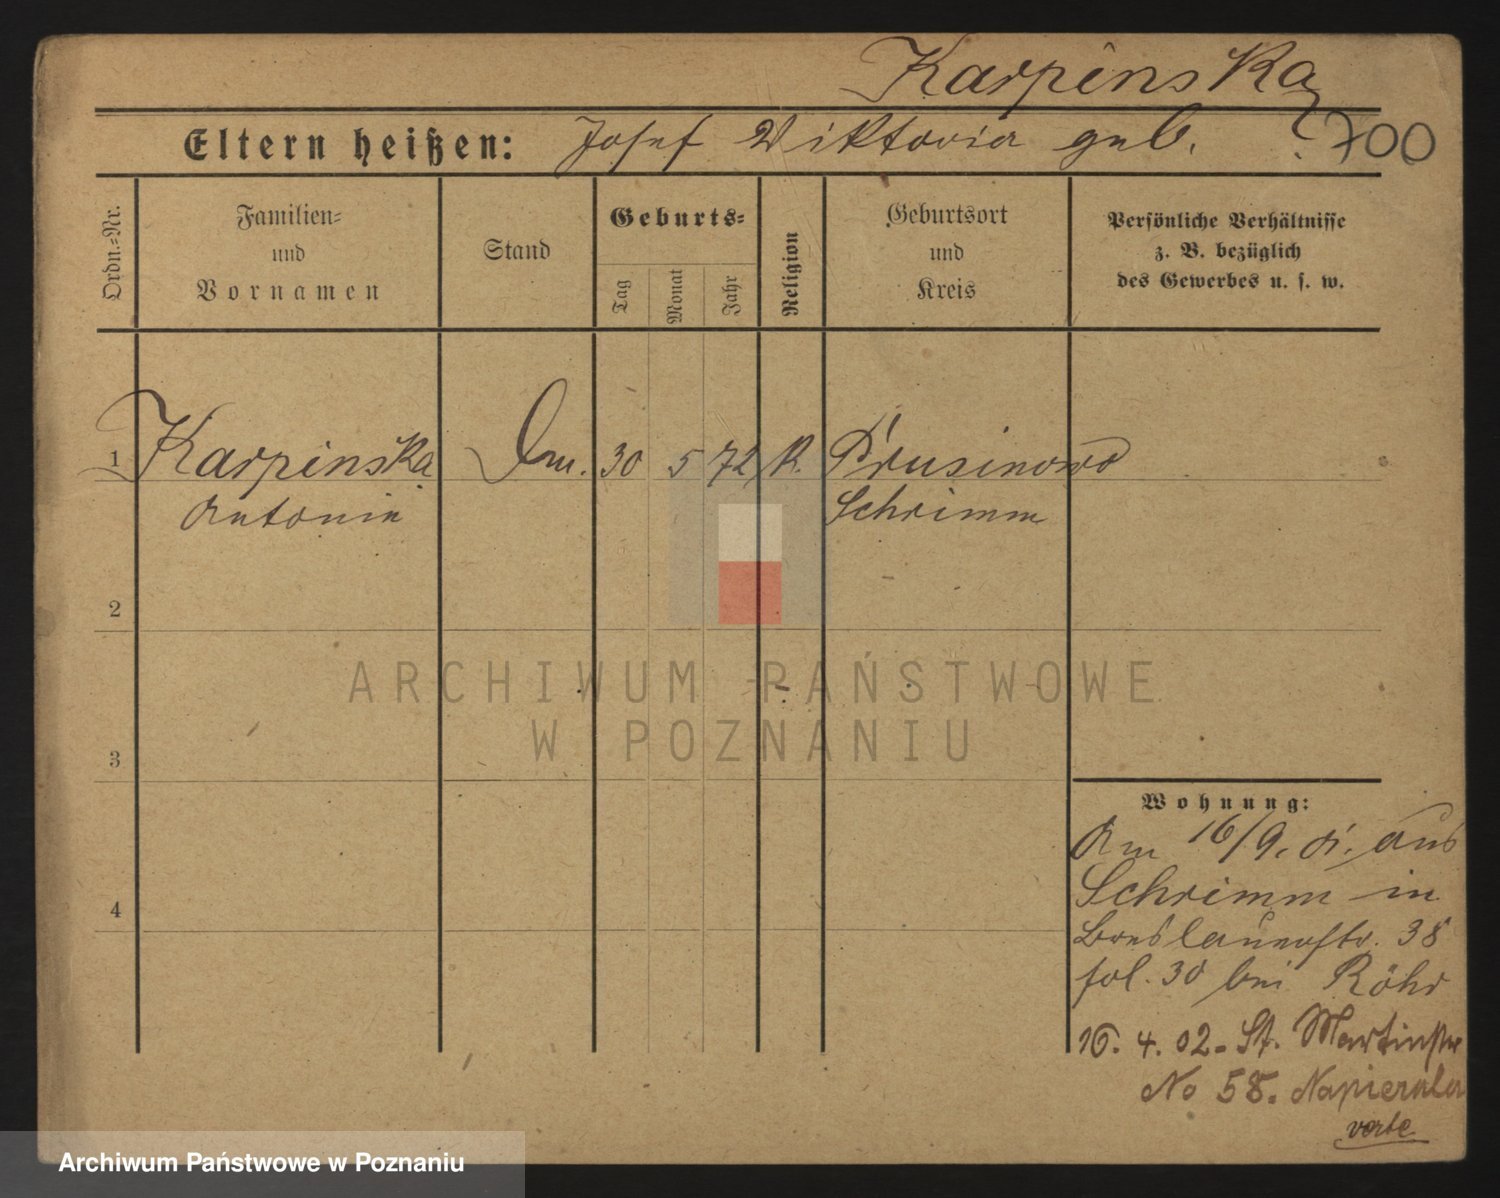 Karpinska
Eltern heißen: Josef Viktoria geb. ? 700
Ordn.=Nr.
Familien=
und
Vornamen
Stand
Geburts=
Tag
Monat
Jahr
Religion
Geburtsort
und
Kreis
Persönliche Verhältnisse
z. B. bezüglich
des Gewerbes u. s. w.
1 Karpinska 30 5 72 k. Prusinowo
Antonie Schrimm
2
3
4
Wohnung:
Am 16/9. aus
Schrimm in
Breslauerstr. 38
fol. 30 bei Röhr
16. 4. 02 - St. Martinstr
No 58. Napierala
verte
ARCHIWUM PAŃSTWOWE
W POZNANIU
Archiwum Państwowe w Poznaniu